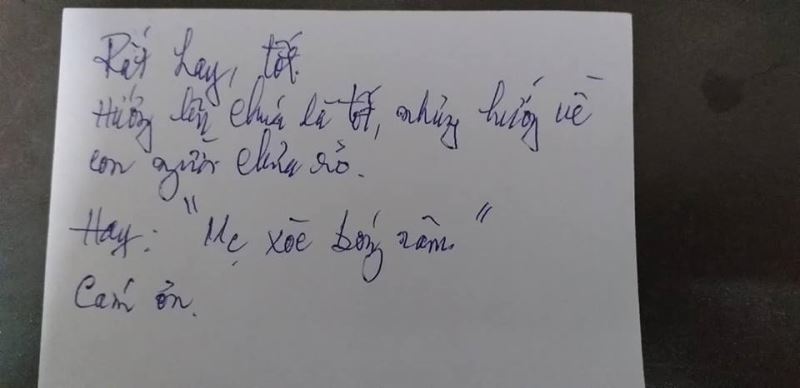 Rất hay, tốt.
Hướng lên Chúa là tốt, nhưng hướng về
con người chưa rõ.
Hay: "Mẹ xòe bóng râm"
Cám ơn.